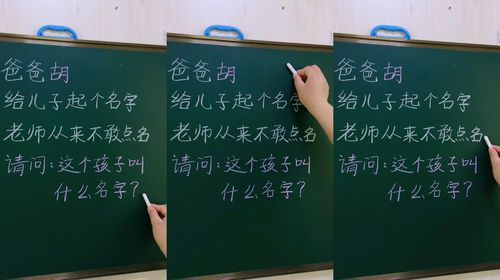 爸爸胡
给儿子起个名字
老师从来不敢点名
请问:这个孩子叫
什么名字?
爸爸胡
给儿子起个名字
老师从来不敢点名
请问:这个孩子叫
什么名字?
爸爸胡
给儿子起个名字
老师从来不敢点名
请问:这个孩子叫
什么名字?